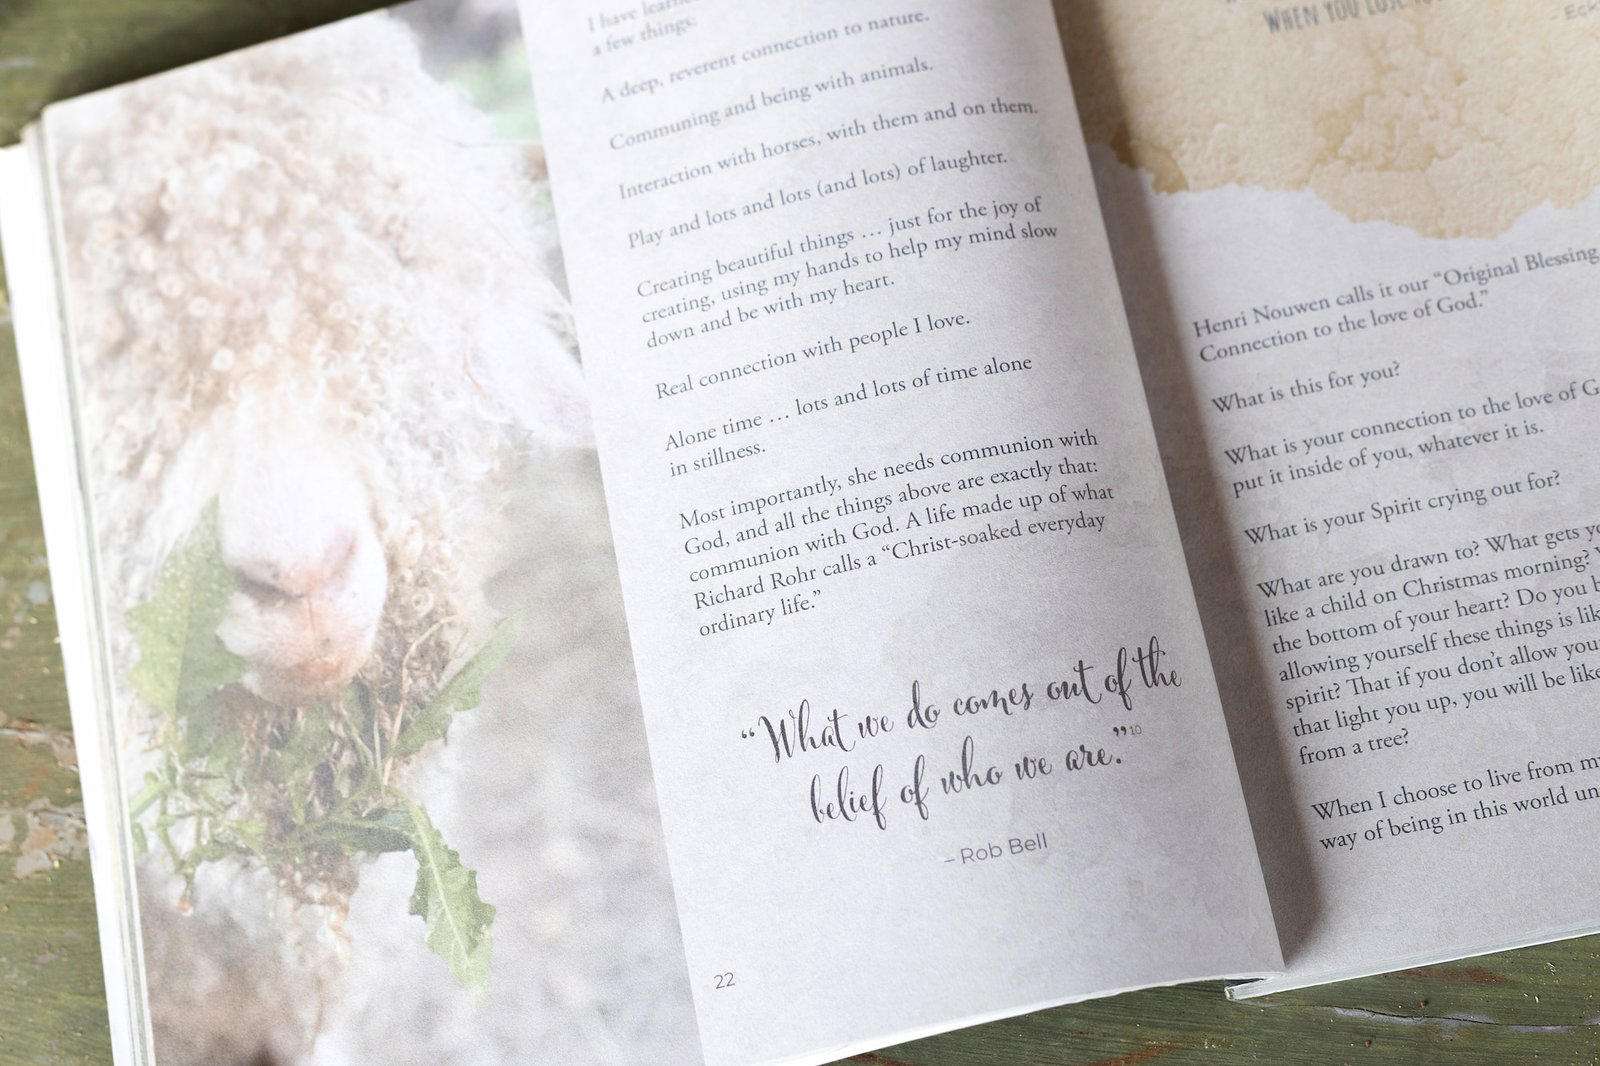 I have
a few things:
A deep, reverent connection to nature.
Communing and being with animals.
Interaction with horses, with them and on them.
Play and lots and lots (and lots) of laughter.
Creating beautiful things … just for the joy of
creating, using my hands to help my mind slow
down and be with my heart.
Real connection with people I love.
Alone time … lots and lots of time alone
in stillness.
Most importantly, she needs communion with
God, and all the things above are exactly that:
communion with God. A life made up of what
Richard Rohr calls a “Christ-soaked everyday
ordinary life.”
“What we do comes out of the
belief of who we are.”10
– Rob Bell
22
WHEN YOU LOSE
Henri Nouwen calls it our “Original Blessing,
Connection to the love of God.”
What is this for you?
What is your connection to the love of
put it inside of you, whatever it is.
What is your Spirit crying out for?
What are you drawn to? What gets
like a child on Christmas morning?
the bottom of your heart? Do you
allowing yourself these things is
spirit? That if you don’t allow
that light you up, you will be
from a tree?
When I choose to live from
way of being in this world